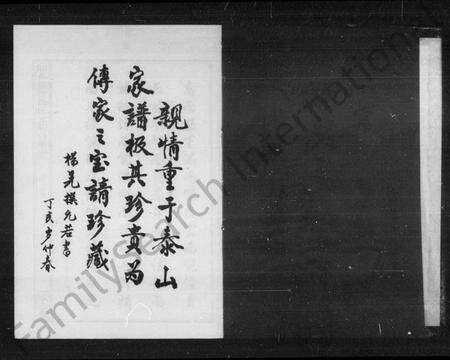 親情重于泰山
家譜极其珍貴為
傳家之宝請珍藏
楊光撰允若書
丁亥岁仲春
FamilySearch International